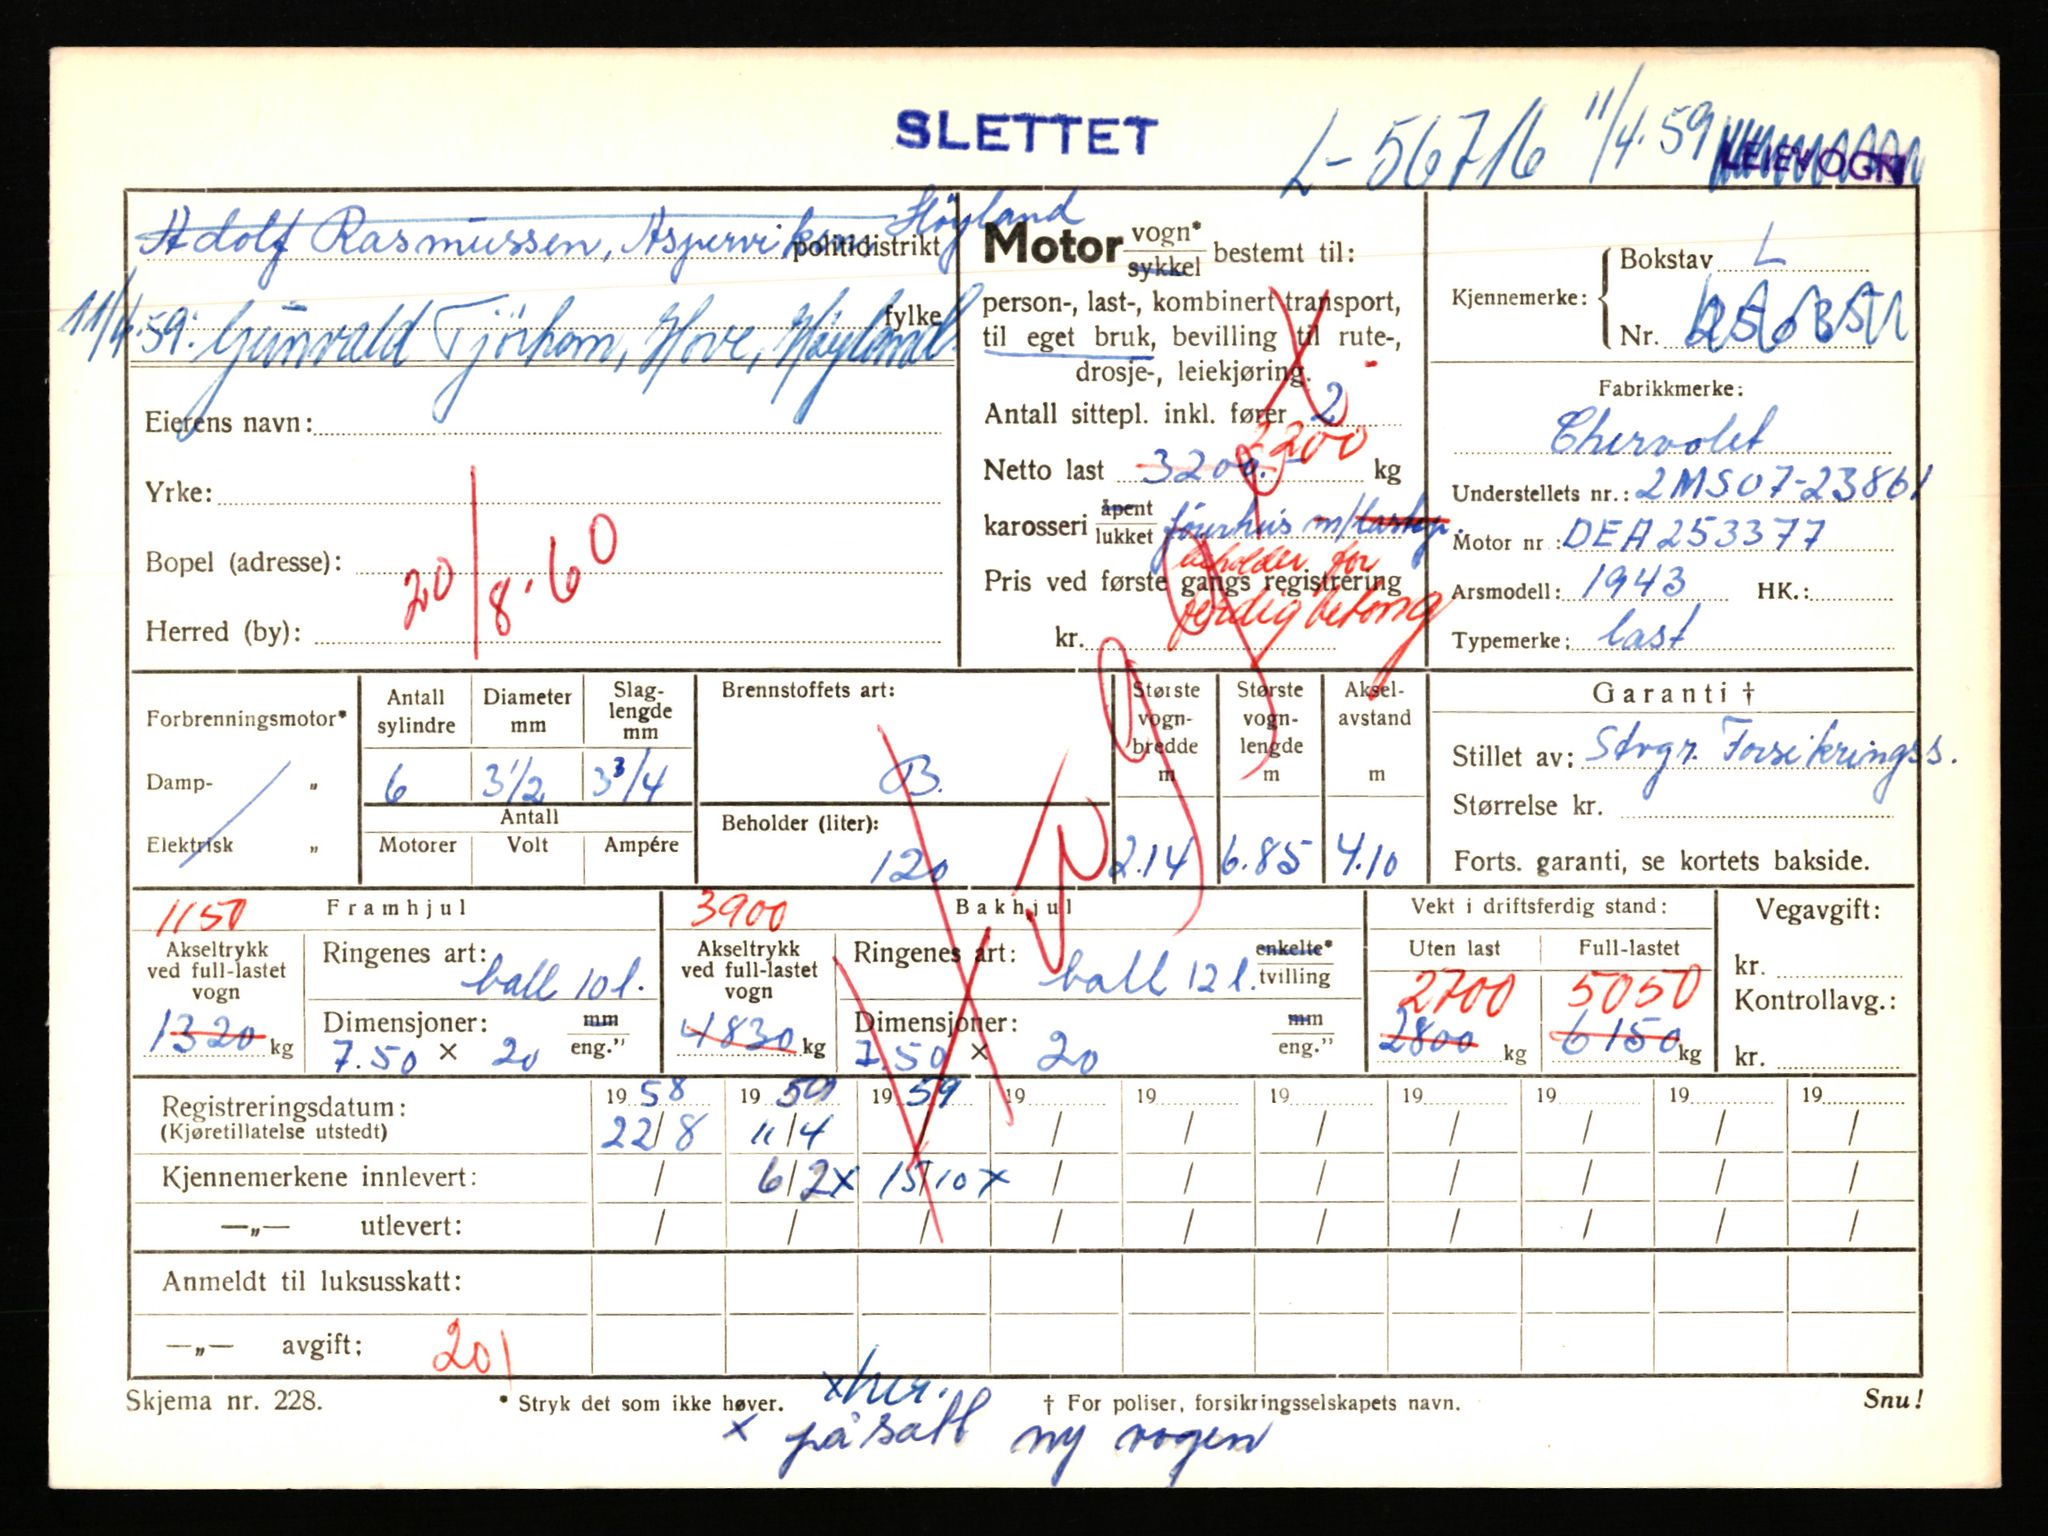 SLETTET
L-56716 11/4.59
LEIEVOGN
Adolf Rasmussen, Asperviksn. Høyland
politidistrikt
11/4.59: Gunvald Tjörhom, Hove, Høyland.
fylke
Eierens navn:
Yrke:
Bopel (adresse):
20/8.60
Herred (by):
Motor vogn* sykkel bestemt til:
person-, last-, kombinert transport,
til eget bruk, bevilling til rute-,
drosje-, leiekjøring.
Antall sittepl. inkl. fører 2
2200
Netto last 3200.- kg
karosseri åpent lukket förerhus m/lastepl.
beholder for
Pris ved første gangs registrering
ferdigbetong
kr.
Kjennemerke: Bokstav L
Nr.
Fabrikkmerke:
Chervolet
Understellets nr.: 2MS07-23861
Motor nr.: DEA253377
Arsmodell: 1943 HK.:
Typemerke: last
Forbrenningsmotor*
Damp- „
Elektrisk „
Antall sylindre 6
Diameter mm 3 1/2
Slag-lengde mm 3 3/4
Antall
Motorer Volt Ampére
Brennstoffets art:
B.
Beholder (liter):
120
Største vogn-bredde m 2.14
Største vogn-lengde m 6.85
Aksel-avstand m 4.10
Garanti †
Stillet av: Strgr. Forsikringss.
Størrelse kr.
Forts. garanti, se kortets bakside.
1150 Framhjul
Akseltrykk ved full-lastet vogn
1320 kg
Ringenes art: ball 10 l.
Dimensjoner: mm
7.50 × 20 eng."
3900 Bakhjul
Akseltrykk ved full-lastet vogn
4830 kg
Ringenes art: ball 12 l. enkelte* tvilling
Dimensjoner: mm
7.50 × 20 eng."
Vekt i driftsferdig stand:
Uten last Full-lastet
2700 5050
2800 kg 6150 kg
Vegavgift:
kr.
Kontrollavg.:
kr.
Registreringsdatum: 19 58 19 59 19 59 19 19 19 19 19 19 19
(Kjøretillatelse utstedt) 22/8 11/4 / / / / / / / /
Kjennemerkene innlevert: / 6/2x 15/10x / / / / / / /
—„— utlevert: / / / / / / / / / /
Anmeldt til luksusskatt:
—„— avgift: 20/
Skjema nr. 228.
* Stryk det som ikke høver.
x her.
† For poliser, forsikringsselskapets navn.
Snu!
x påsatt ny vogen